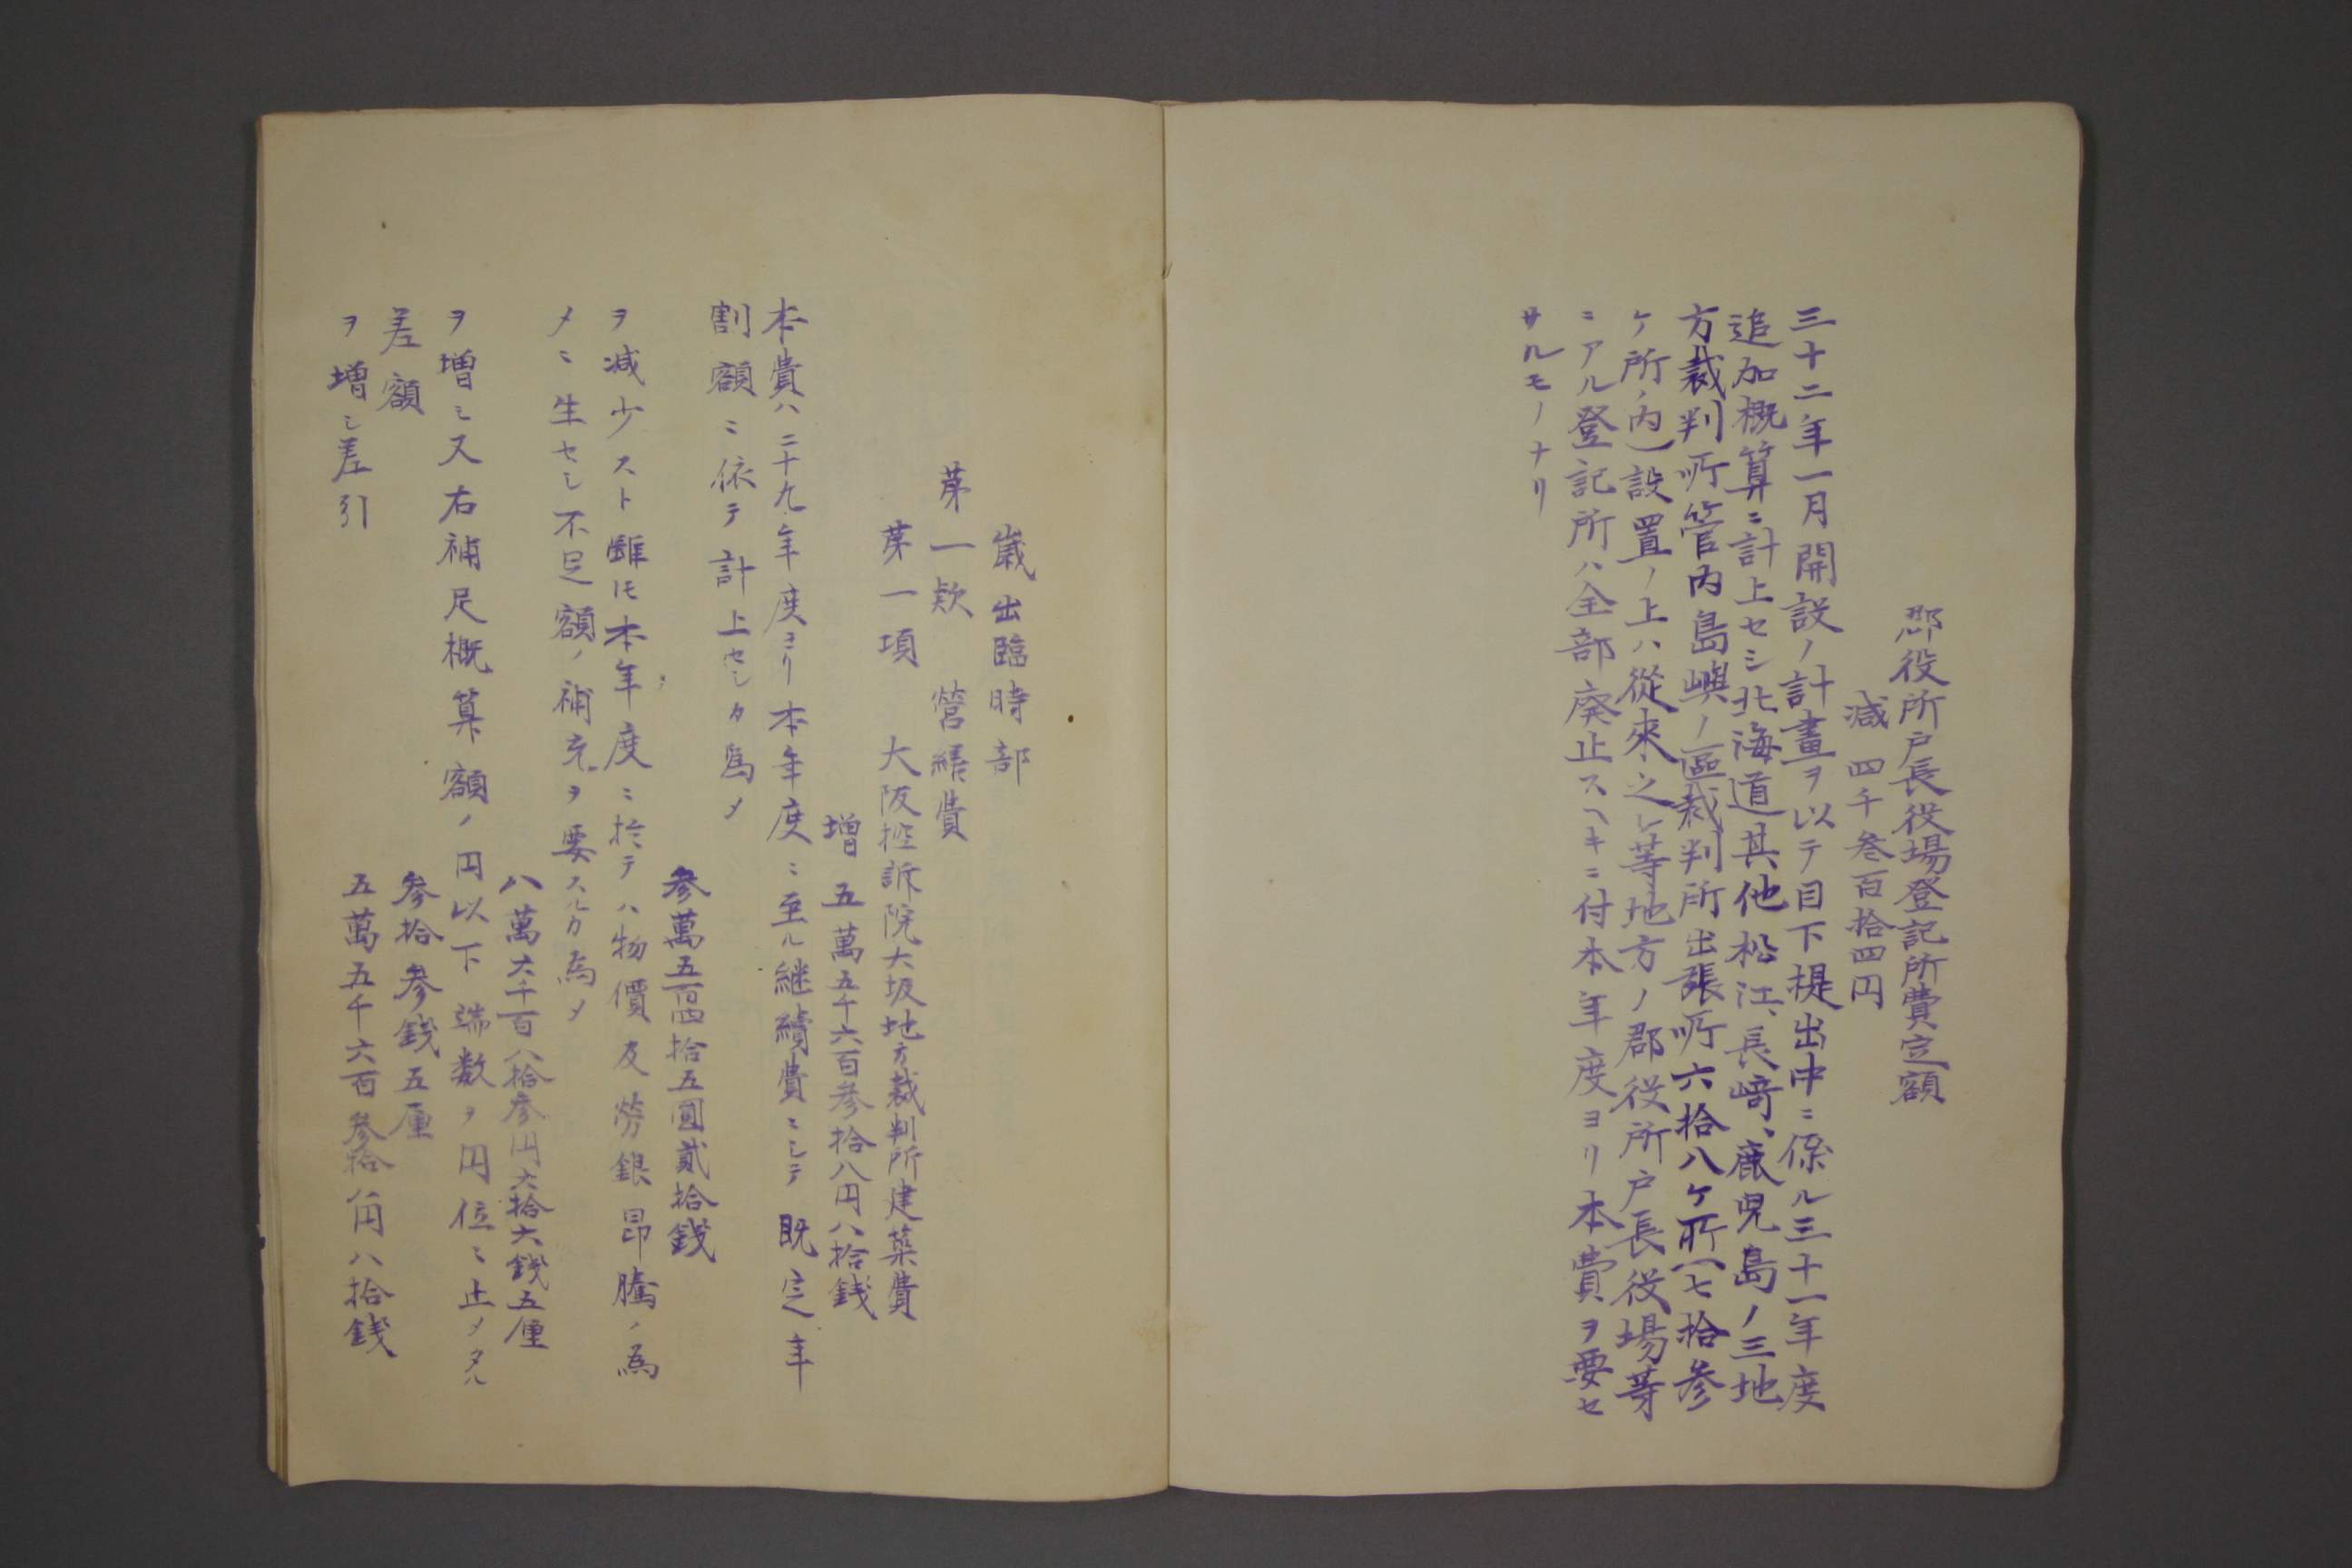 郡役所戸長役場登記所費定額
減四千叁百拾四円
三十二年一月開設ノ計畫ヲ以テ目下提出中ニ係ル三十一年度
追加概算ニ計上セシ北海道其他松江、長崎、鹿児島ノ三地
方裁判所管内島嶼ノ區裁判所出張所六拾八ケ所(七拾参
ケ所ノ内)設置ノ上ハ從來之レ等地方ノ郡役所戸長役場等
ニアル登記所ハ全部廃止スヘキニ付本年度ヨリ本費ヲ要セ
サルモノナリ
歳出臨時部
第一款 営繕費
第一項 大阪控訴院大坂地方裁判所建築費
増 五萬五千六百参拾八円八拾銭
本費ハ二十九年度ヨリ本年度ニ至ル継續費ニシテ既定年
割額ニ依テ計上セシカ為メ
参萬五百四拾五圓貳拾銭
ヲ減少スト雖モ本年度ニ於テハ物價及労銀昂騰ノ為
メニ生セシ不足額ノ補充ヲ要スルカ為メ
八萬六千百八拾参円六拾六銭五厘
ヲ増シ又右補足概算額ノ円以下端数ヲ円位ニ止メタル
差額
参拾参銭五厘
ヲ増シ差引
五萬五千六百参拾八円八拾銭